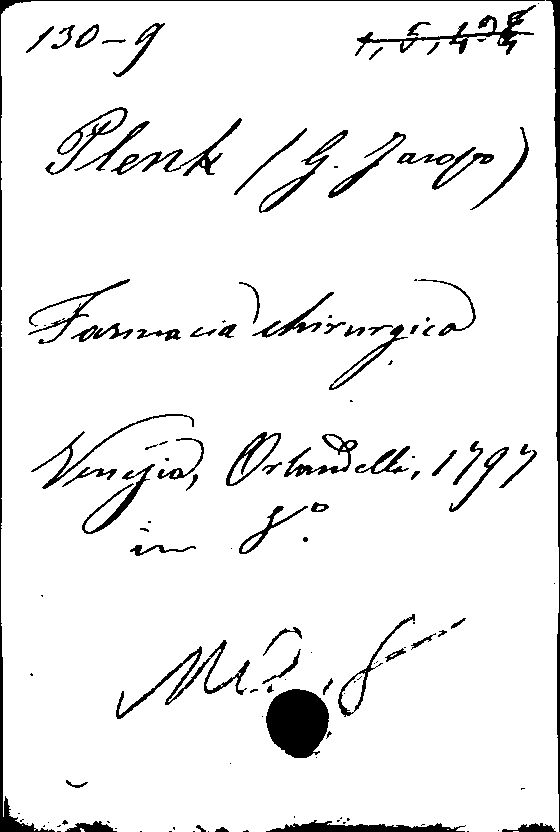 130-9
Plenk (G. Jacopo)
Farmacia chirurgica
Venezia, Orlandelli, 1797
in 8.º
Med. 8